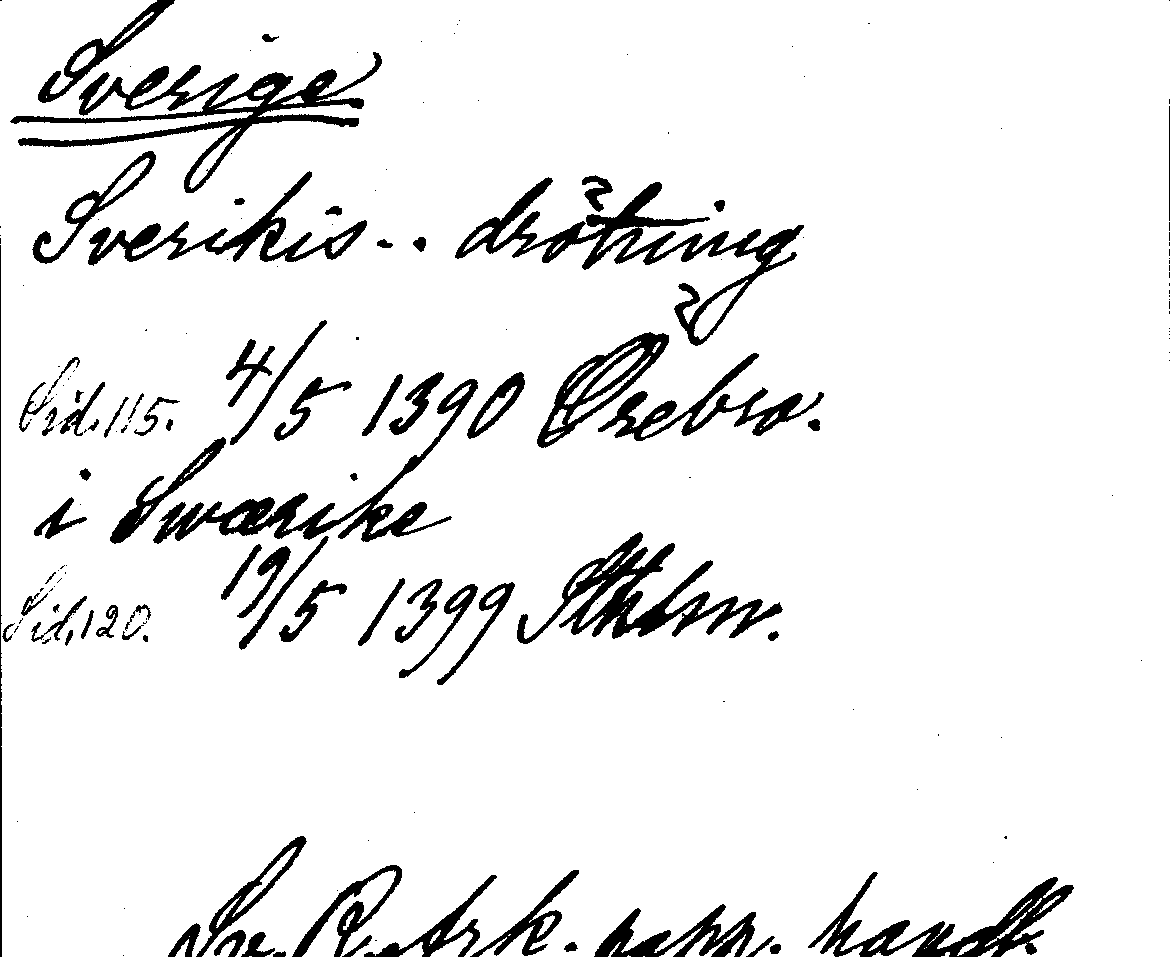 Sverige
Sverikis - . drötning
Sid. 115. 4/5 1390 Örebro.
i Swærike
Sid. 120. 19/5 1399 Sthlm.
Sv. R. Ark. papp. handl.